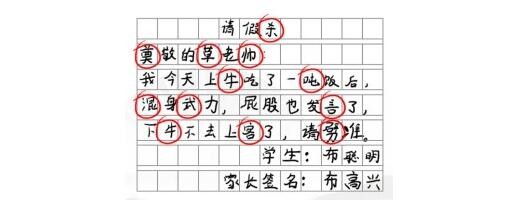 请假杀
奠敬的草老帅:
我今天上牛吃了一吨饭后,
混身武力,屁股也发言了,
下牛不去上客了,请努准。
学生:布聪明
家长签名:布高兴